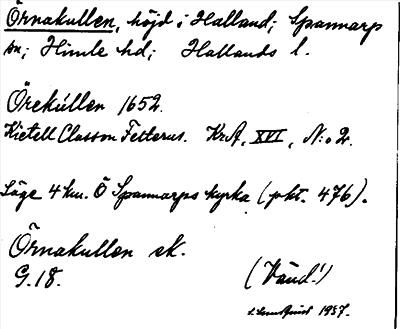 Örnakullen, höjd i Halland; Spannarps
sn; Himle hd; Hallands l.
Örekúllen 1652.
Kietell Classon Felterus. KrA, XVI, N:o 2.
Läge 4 km. Ö Spannarps kyrka (pkt. 476).
Örnakullen ek.
G.18.
(Vänd!)
1937.